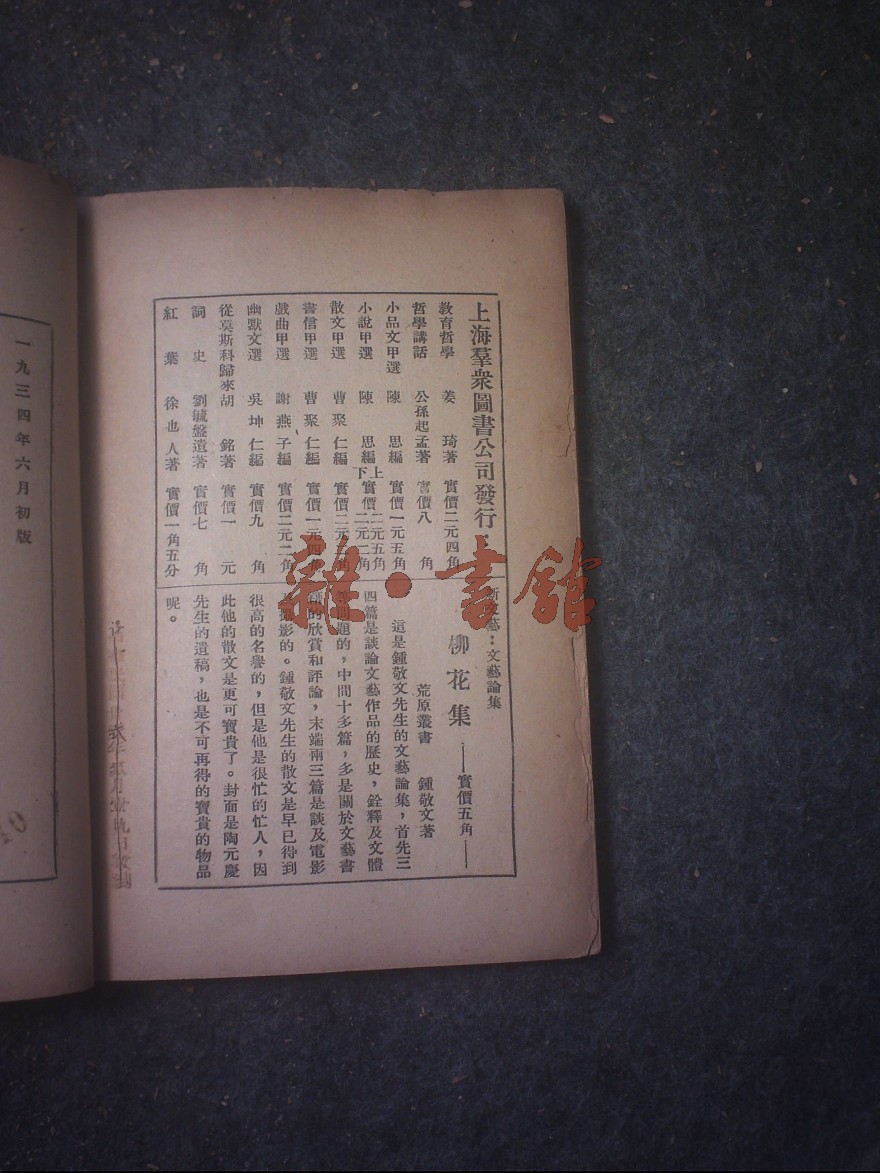 上海羣衆圖書公司發行：
教育哲學 姜琦著 實價二元四角
哲學講話 公孫起孟著 實價八角
小品文甲選 陳思編 實價一元五角
小說甲選 陳思編 上下 實價二元五角 二元二角
散文甲選 曹聚仁編 實價二元二角
書信甲選 曹聚仁編 實價一元四角
戲曲甲選 謝燕子編 實價二元二角
幽默文選 吳坤仁編 實價九角
從莫斯科歸來 胡銘著 實價一元
詞史 劉毓盤遺著 實價七角
紅葉 徐也人著 實價一角五分
新文藝：文藝論集
柳花集——實價五角——
荒原叢書 鍾敬文著
這是鍾敬文先生的文藝論集，首先三
四篇是談論文藝作品的歷史，銓釋及文體
等問題的，中間十多篇，多是關於文藝書
籍的欣賞和評論，末端兩三篇是談及電影
攝影的。鍾敬文先生的散文是早已得到
很高的名譽的，但是他是很忙的忙人，因
此他的散文是更可寶貴了。封面是陶元慶
先生的遺稿，也是不可再得的寶貴的物品
呢。
一九三四年六月初版
雜·書館